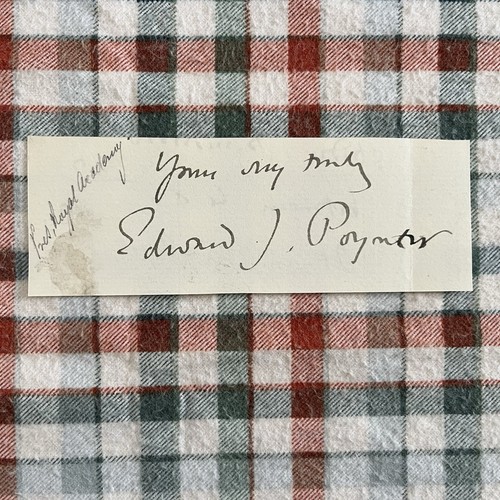 Pres. Royal Academy.
Yours very truly
Edward J. Poynter